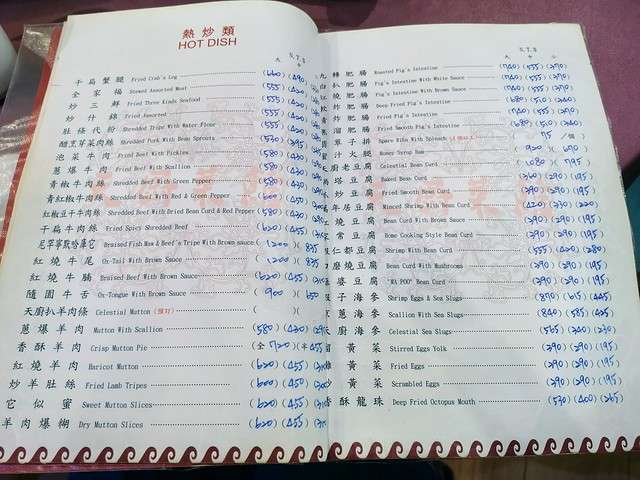 熱炒類
HOT DISH
N.T.$
大 中
干扁蟹腿 Fried Crab's Leg (660)(490)
全家福 Stewed Assorted Meat (555)(420)
炒三鮮 Fried Three Kinds Seafood (555)(420)
炒什錦 Fried Assorted (555)(420)
肚條代粉 Shredded Tripe With Water Flour (555)(420)
醋烹芽菜肉絲 Shredded Pork With Bean Sprouts (530)(395)
泡菜牛肉 Fried Beef With Pickles (580)(430)
蔥爆牛肉 Fried Beef With Scallion (580)(430)
青椒牛肉絲 Shredded Beef With Green Pepper (580)(430)
青紅椒牛肉絲 Shredded Beef With Red & Green Pepper (600)(450)
紅椒豆干牛肉絲 Shredded Beef With Dried Bean Curd & Red Pepper (580)(430)
干扁牛肉絲 Fried Spicy Shredded Beef (620)(455)
Braised Fish Maw & Beef's Tripe With Brown sauce (1200)(835
紅燒牛尾 Ox-Tail With Brown Sauce (1200)(835
紅燒牛腩 Braised Beef With Brown Sauce (620)(455)
隨園牛舌 Ox-Tongue With Brown Sauce (900)(650
天廚扒羊肉條 Celestial Mutton (預訂) ( )(
蔥爆羊肉 Mutton With Scallion (580)(420)
香酥羊肉 Crisp Mutton Pie (全720)(半455
紅燒羊肉 Haricot Mutton (620)(455)
炒羊肚絲 Fried Lamb Tripes (600)(450)
它似蜜 Sweet Mutton Slices (620)(455)
羊肉爆糊 Dry Mutton Slices (620)(455)
N.T.$
大 中 小
九轉肥腸 Roasted Pig's Intestine (740)(555)(370)
肥腸 Pig's Intestine With White Sauce (740)(555)(370)
燒肥腸 Pig's Intestine With Brown Sauce (740)(555)(370)
炸肥腸 Deep Fried Pig's Intestine (680)(510)(340)
炸肥腸 Fried Pig's Intestine (680)(510)(340)
溜肥腸 Fried Smooth Pig's Intestine (680)(510)(340)
單子排 Spare Ribs With Spinach 75 (個)
汁火腿 Honey Syrup Ham (920)(690)
天廚老豆腐 Celestial Bean Curd (1080)(795)
塔豆腐 Baked Bean Curd (390)(290)(195)
炒豆腐 Fried Smooth Bean Curd (390)(290)(195)
年居豆腐 Minced Shrimp With Bean Curd (420)(320)(220)
燒豆腐 Bean Curd With Brown Sauce (390)(290)(195)
常豆腐 Home Cooking Style Bean Curd (390)(290)(195)
仁都豆腐 Shrimp With Bean Curd (555)(420)(280)
磨燒豆腐 Bean Curd With Mushrooms (390)(290)(195)
婆豆腐 "MA POO" Bean Curd (390)(290)(195)
子海參 Shrimp Eggs & Sea Slugs (890)(615)(445)
蔥海參 Scallion With Sea Slugs (840)(585)(425)
天廚海參 Celestial Sea Slugs (565)(340)(230)
黃菜 Stirred Eggs Yolk (390)(290)(195)
黃菜 Fried Eggs (390)(290)(195)
炒黃菜 Scrambled Eggs (390)(290)(195)
香酥龍珠 Deep Fried Octopus Mouth (530)(400)(265)